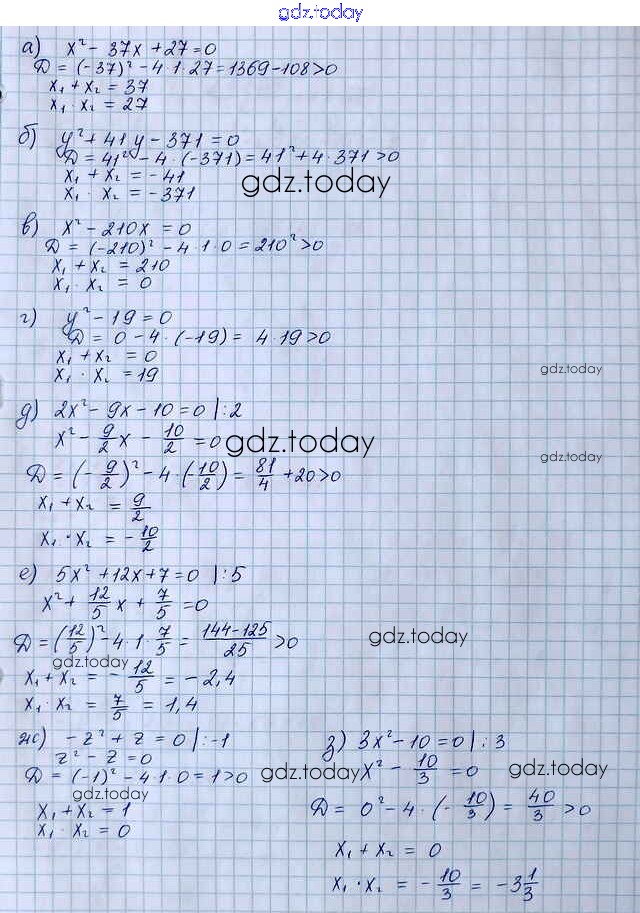 gdz.today
а) x² - 37x + 27 = 0
Д = (-37)² - 4·1·27 = 1369 - 108 > 0
x₁ + x₂ = 37
x₁ · x₂ = 27
б) y² + 41y - 371 = 0
Д = 41² - 4·(-371) = 41² + 4·371 > 0
x₁ + x₂ = -41
gdz.today
x₁ · x₂ = -371
в) x² - 210x = 0
Д = (-210)² - 4·1·0 = 210² > 0
x₁ + x₂ = 210
x₁ · x₂ = 0
г) y² - 19 = 0
Д = 0 - 4·(-19) = 4·19 > 0
x₁ + x₂ = 0
gdz.today
x₁ · x₂ = 19
д) 2x² - 9x - 10 = 0 |:2
x² - 9/2 x - 10/2 = 0
gdz.today
gdz.today
Д = (-9/2)² - 4·(-10/2) = 81/4 + 20 > 0
x₁ + x₂ = 9/2
x₁ · x₂ = -10/2
е) 5x² + 12x + 7 = 0 |:5
x² + 12/5 x + 7/5 = 0
Д = (12/5)² - 4·1·7/5 = 144-125/25 > 0
gdz.today
gdz.today
x₁ + x₂ = -12/5 = -2,4
x₁ · x₂ = 7/5 = 1,4
ж) -z² + z = 0 |:-1
z² - z = 0
Д = (-1)² - 4·1·0 = 1 > 0
gdz.today
x₁ + x₂ = 1
x₁ · x₂ = 0
з) 3x² - 10 = 0 |:3
x² - 10/3 = 0
gdz.today
gdz.today
Д = 0² - 4·(-10/3) = 40/3 > 0
x₁ + x₂ = 0
x₁ · x₂ = -10/3 = -3 1/3